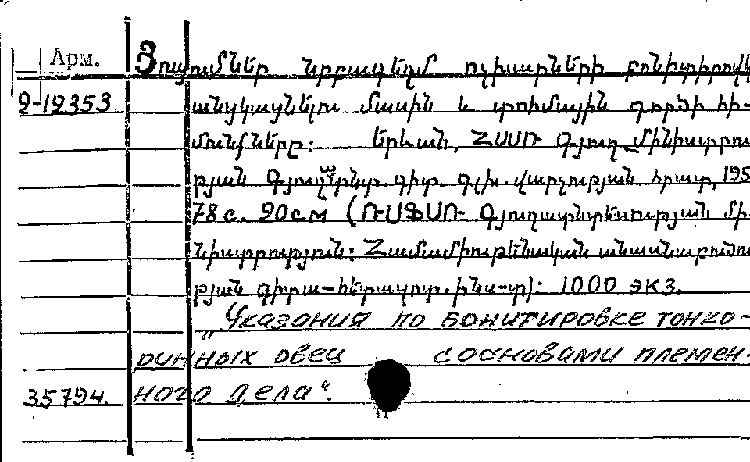 Арм.
Ցուցումներ նրբագեղմ ոչխարների բոնիտիրովկ
2-12353 անցկացնելու մասին և տոհմային գործի հի-
մունքները: Երևան, ՀՍՍՌ Գյուղ. մինիստրու
թյան Գյուղ. գիտ. գլխ. վարչության հրատ, 195
78 с. 20 см (ՌՍՖՍՌ Գյուղատնտեսության մի-
նիստրություն: Համամիութենական անասնաբուծու
թյան գիտա-հետազոտ. ինս-տ): 1000 экз.
„Указания по бонитировке тонко-
рунных овец с основами племен-
35794. ного дела“.